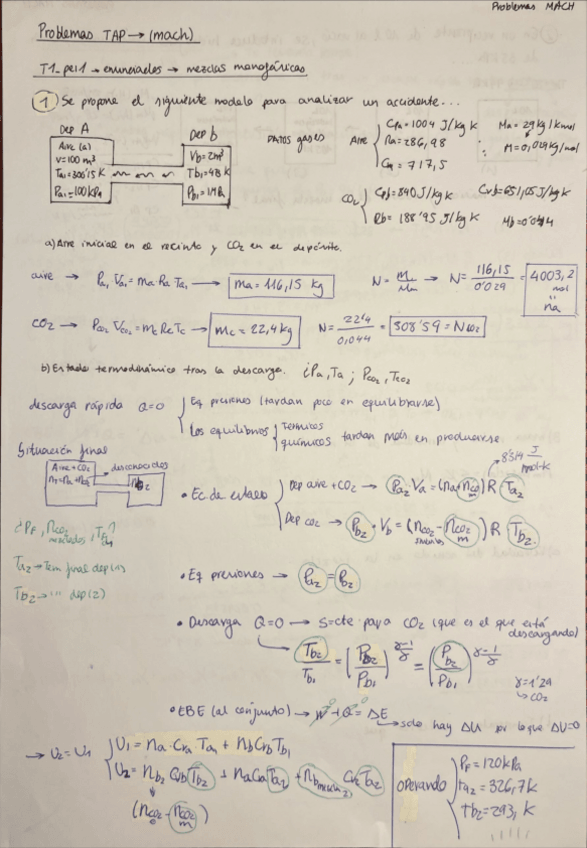 Problemas MACH
Problemas TAP → (mach)
T1. pei1 → enunciados → mezclas monofásicas
1) Se propone el siguiente modelo para analizar un accidente...
Dep A
Aire (a)
V=100 m³
Ta1=300'15 K
Pa1=100 kPa
Dep b
Vb=2m³
Tb1=
Pb1=
Datos gases
Aire
Cpa=1004 J/kg K
Ra=286,98
Ca=717,5
Ma=29 kg/kmol
M=0,029 kg/mol
CO₂
Cpb=840 J/kg K
Rb=188'95 J/kg K
Cvb=651,05 J/kg K
Mb=0'044
a) Aire inicial en el recinto y CO₂ en el depósito.
aire → Pa₁ Va₁ = ma Ra Ta₁ → ma = 116,15 kg
N = m/M → N = 116,15/0'029 = 4003,2 mol
na
CO₂ → Pco₂ Vco₂ = mc Rc Tc → mc = 22,4 kg
N = 22'4/0,044 = 508'59 = Nco₂
b) Estado termodinámico tras la descarga. ¿Pa, Ta ; Pco₂, Tco₂
descarga rápida Q=0
Eq presiones (tardan poco en equilibrarse)
Los equilibrios térmicos químicos tardan más en producirse
Situación final
Aire + CO₂
desconocidos
¿PF, nco₂
Ta₂ → Tem final dep(1)
Tb₂ → " dep(2)
• Ec. de estado
8'314 J/mol·K
Dep aire + CO₂ → Pa₂ · Va = (na + nco₂) R Ta₂
Dep co₂ → Pb₂ · Vb = (nco₂ - nco₂ m) R Tb₂
• Eq presiones → Pa₂ = Pb₂
• Descarga Q=0 → S=cte para CO₂ (que es el que está descargando)
Tb₂/Tb₁ = (Pb₂/Pb₁)^(γ-1/γ) = (Pb₂/Pb₁)^(γ-1/γ)
γ=1'29
→ CO₂
• EBE (al conjunto) → W + Q = ΔE
→ solo hay ΔU por lo que ΔU=0
→ U₂ = U₁
U₁ = na · Cva Ta₁ + nb Cvb Tb₁
U₂ = nb₂ Cvb Tb₂ + na Ca Ta₂ + nb Ta₂
(nco₂ - nco₂ m)
Operando
PF = 120 kPa
ta₂ = 326,7 K
tb₂ = 293, K